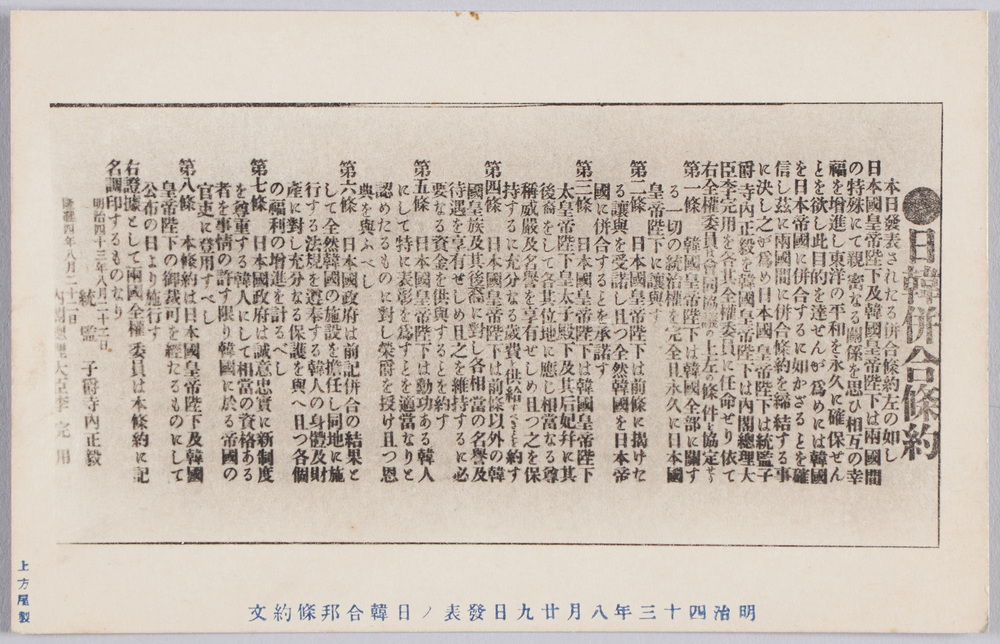 ●日韓併合條約
本日發表されたる併合條約左の如し
日本國皇帝陛下及韓國皇帝陛下は兩國間
の特殊にて親密なる關係を思ひ相互の幸
福を增進し東洋の平和を永久に確保せん
とを欲し此目的を達せんが爲めには韓國
を日本帝國に併合するに如かざるとを確
信し茲に兩國間に併合條約を締結する事
に決し之が爲め日本國皇帝陛下は統監子
爵寺內正毅を韓國皇帝陛下は內閣總理大
臣李完用を各其全權委員に任命せり依て
右全權委員は會同協議の上左の條件を協定せり
第一條 韓國皇帝陛下は韓國全部に關す
る一切の統治權を完全且永久に日本國
皇帝陛下に讓與す
第二條 日本國皇帝陛下は前條に揭けた
る讓與を受諾し且つ全然韓國を日本帝
國に併合するとを承諾す
第三條 日本國皇帝陛下は韓國皇帝陛下
太皇帝陛下皇太子殿下及其后妃幷に其
後裔をして各其位地に應じ相當なる尊
稱威嚴及名譽を享有せしめ且つ之を保
持するに充分なる歲費を供給すべきとを約す
第四條 日本國皇帝陛下は前條以外の韓
國皇族及其後裔に對し各相當の名譽及
待遇を享有せしめ且之を維持するに必
要なる資金を供與するとを約す
第五條 日本國皇帝陛下は勳功ある韓人
にして特に表彰を爲すとを適當なりと
認めたるものに對し榮爵を授け且つ恩
典を與ふべし
第六條 日本國政府は前記併合の結果と
して全然韓國の施設を擔任し同地に施
行する法規を遵奉する韓人の身體及財
產に對し充分なる保護を與へ且つ各個
の福利の增進を計るべし
第七條 日本國政府は誠意忠實に新制度
を尊重する韓人にして相當の資格ある
者を事情の許す限り韓國に於る帝國の
官吏に登用すべし
第八條 本條約は日本國皇帝陛下及韓國
皇帝陛下の御裁可を經たるものにして
公布の日より施行す
右證據として兩國全權委員は本條約に記
名調印するものなり
明治四十三年八月二十二日
統監 子爵寺內正毅
隆熙四年八月二十二日
內閣總理大臣李完用
明治四十三年八月廿九日發表ノ日韓合邦條約文
上方屋製